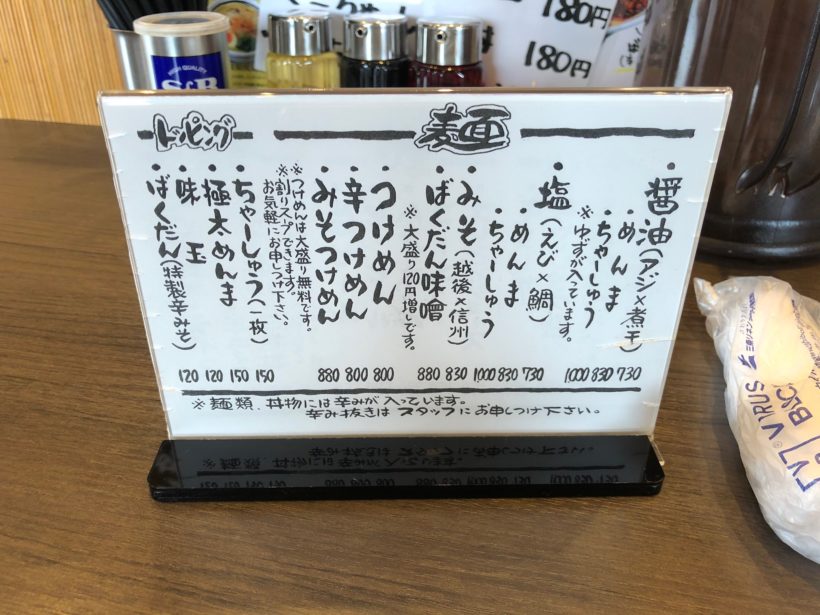 180円
180円
HIGH QUALITY
S&B
麺
・醤油(アジ×煮干)
・めんま
・ちゃーしゅう
※ゆずが入っています。
・塩(えび×鯛)
・めんま
・ちゃーしゅう
・みそ(越後×信州)
・ばくだん味噌
※大盛り120円増しです。
・つけめん
・辛つけめん
・みそつけめん
※つけめんは大盛り無料です。
※割りスープできます。
お気軽にお申しつけ下さい。
トッピング
・ちゃーしゅう(一枚)
・極太めんま
・味玉
・ばくだん(特製辛みそ)
120 120 150 150 880 800 800 880 830 1000 830 730 1000 830 730
※麺類、丼物には辛みが入っています。
辛み抜きはスタッフにお申しつけ下さい。
VIRUS
三条リネン